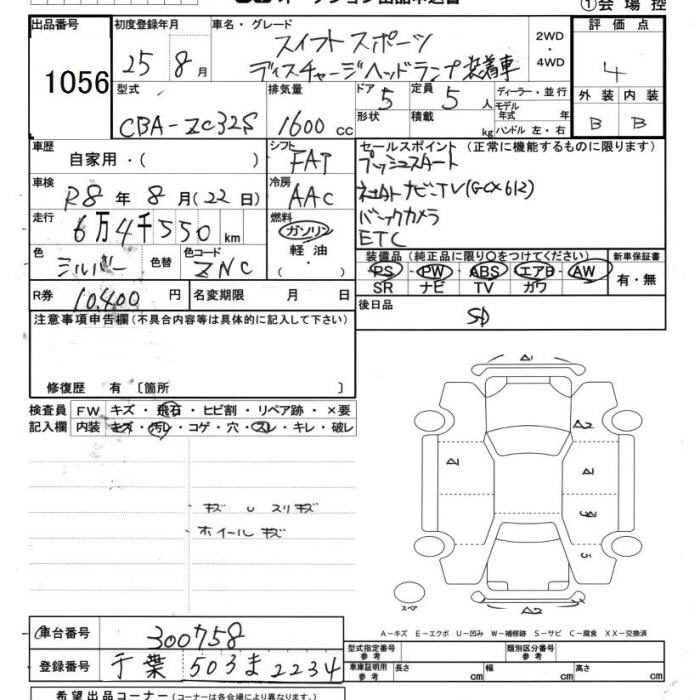 ①会場控
出品番号 1056
初度登録年月 25 8月
車名・グレード スイフトスポーツ
ディスチャージヘッドランプ装着車
2WD・4WD
評価点 4
外装 内装
B B
型式 CBA-ZC32S
排気量 1600cc
ドア 5 定員 5人
形状 積載 kg
ディーラー・並行
モデル年式 年
ハンドル 左・右
車歴 自家用・( )
シフト FAT
セールスポイント(正常に機能するものに限ります)
プッシュスタート
社外ナビTV(GCX612)
バックカメラ
ETC
車検 R8年8月(22日)
冷房 AAC
走行 6万4千550km
燃料 ガソリン・軽油・( )
色 シルバー 色替 色コード ZNC
装備品(純正品に限り○をつけてください)
PS・PW・ABS・エアB・AW
SR ナビ TV カワ
新車保証書 有・無
R券 10,400円
名変期限 月 日
後日品 SD
注意事項申告欄(不具合内容等は具体的に記入して下さい)
修復歴 有〔箇所 〕
検査員記入欄
FW キズ・飛石・ヒビ割・リペア跡・×要
内装 キズ・汚レ・コゲ・穴・スレ・キレ・破レ
キズ U スリキズ
ホイールキズ
A1
A2
A1
A2
スペア
A-キズ E-エクボ U-凹み W-補修跡 S-サビ C-腐食 XX-交換済
車台番号 300758
登録番号 千葉 503 ま 2234
型式指定番号 参考
類別区分番号 参考
車庫証明用 参考 長さ cm 幅 cm 高さ cm
希望出品コーナー(コーナーは各会場により異なります。)